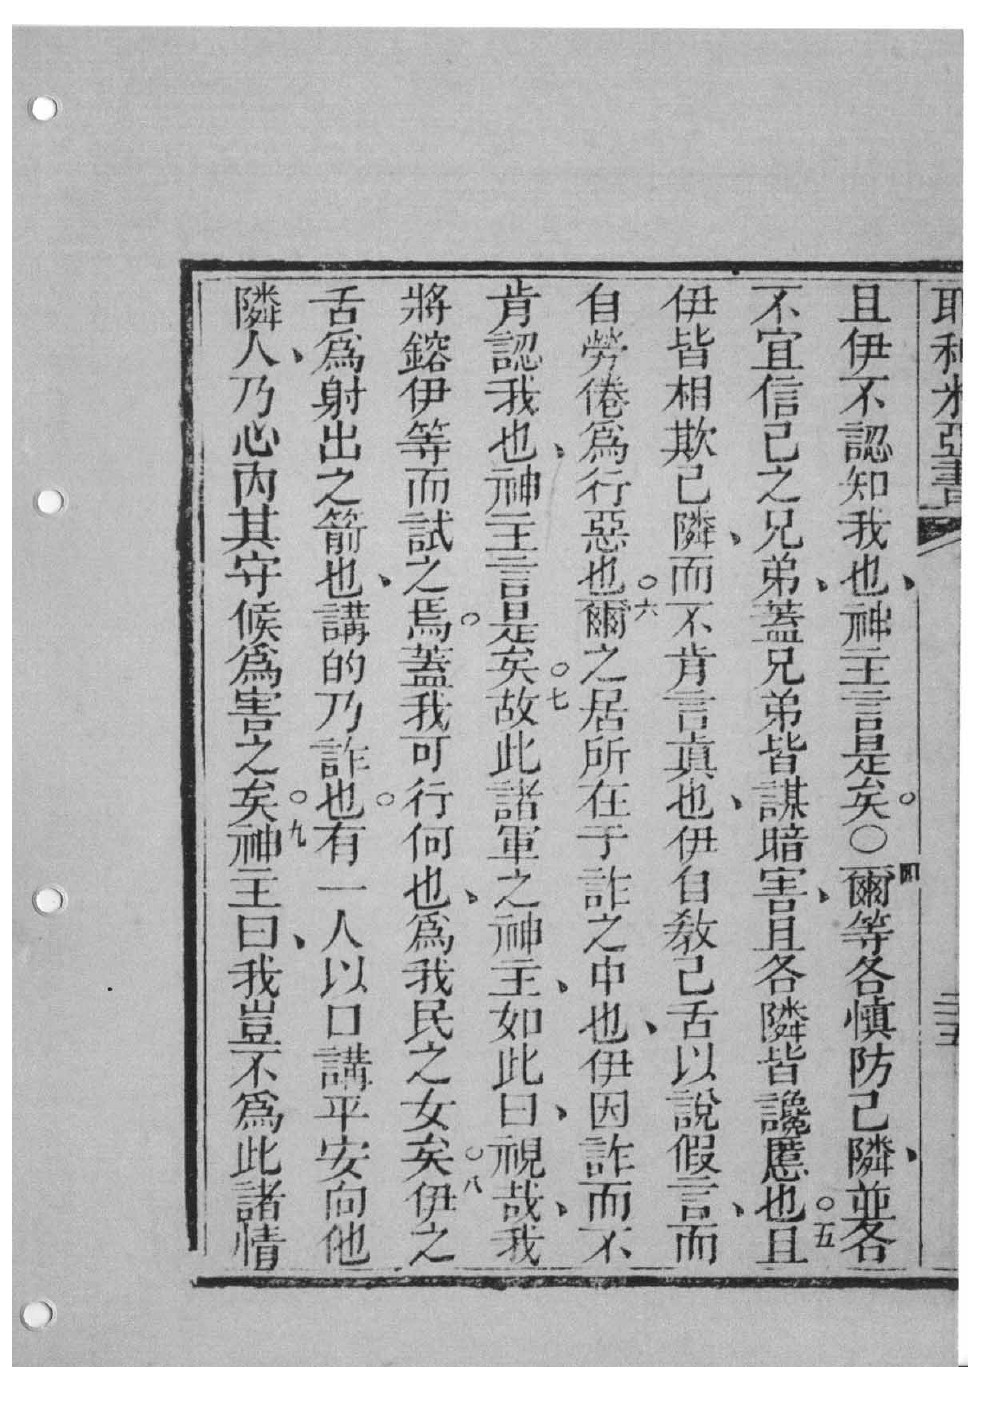 耶利米亞書 二五
且伊不認知我也、神主言是矣。○四爾等各慎防己隣、並各
不宜信己之兄弟、蓋兄弟皆謀暗害、且各隣皆讒慝也。五且
伊皆相欺己隣、而不肯言真也、伊自教己舌以說假言、而
自勞倦為行惡也。六爾之居所在于詐之中也、伊因詐而不
肯認我也、神主言是矣。七故此諸軍之神主、如此曰、視哉、我
將鎔伊等而試之焉。蓋我可行何也、為我民之女矣。八伊之
舌為射出之箭也、講的乃詐也。有一人以口講平安向他
隣人、乃心內其守候為害之矣。九神主曰、我豈不為此諸情